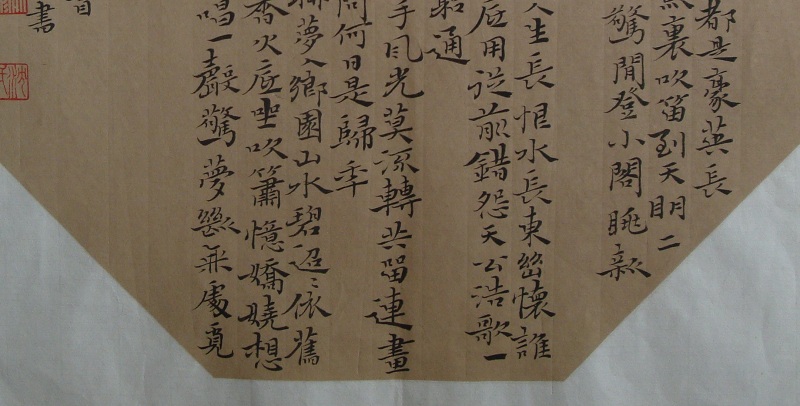 都是豪英長
裏吹笛到天明二
驚閒登小閣眺新
人生長恨水長東幽懷誰
底用從前錯怨天公浩歌一
通
手風光莫流轉共留連畫
問何日是歸年
夢入鄉園山水碧迢〻依舊
香火底坐吹簫憶嬌嬈想
唱一聲驚夢無處覓
書